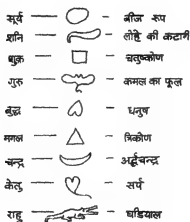 सूर्य — बीज रूप
शनि — लोहे की कटारी
शुक्र — चतुष्कोण
गुरु — कमल का फूल
बुद्ध — धनुष
मगल — त्रिकोण
चन्द्र — अर्द्धचन्द्र
केतु — सर्प
राहु — घडियाल